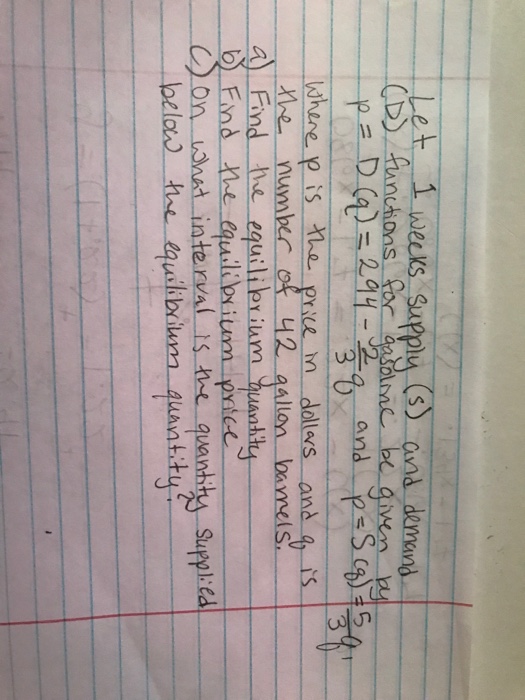 Let 1 weeks supply (s) and demand
(D) functions for gasoline be given by
p = D(q) = 294 - 2/3 q and p = S(q) = 5/3 q,
where p is the price in dollars and q is
the number of 42 gallon barrels.
a) Find the equilibrium quantity
b) Find the equilibrium price
c) on what interval is the quantity supplied
below the equilibrium quantity?